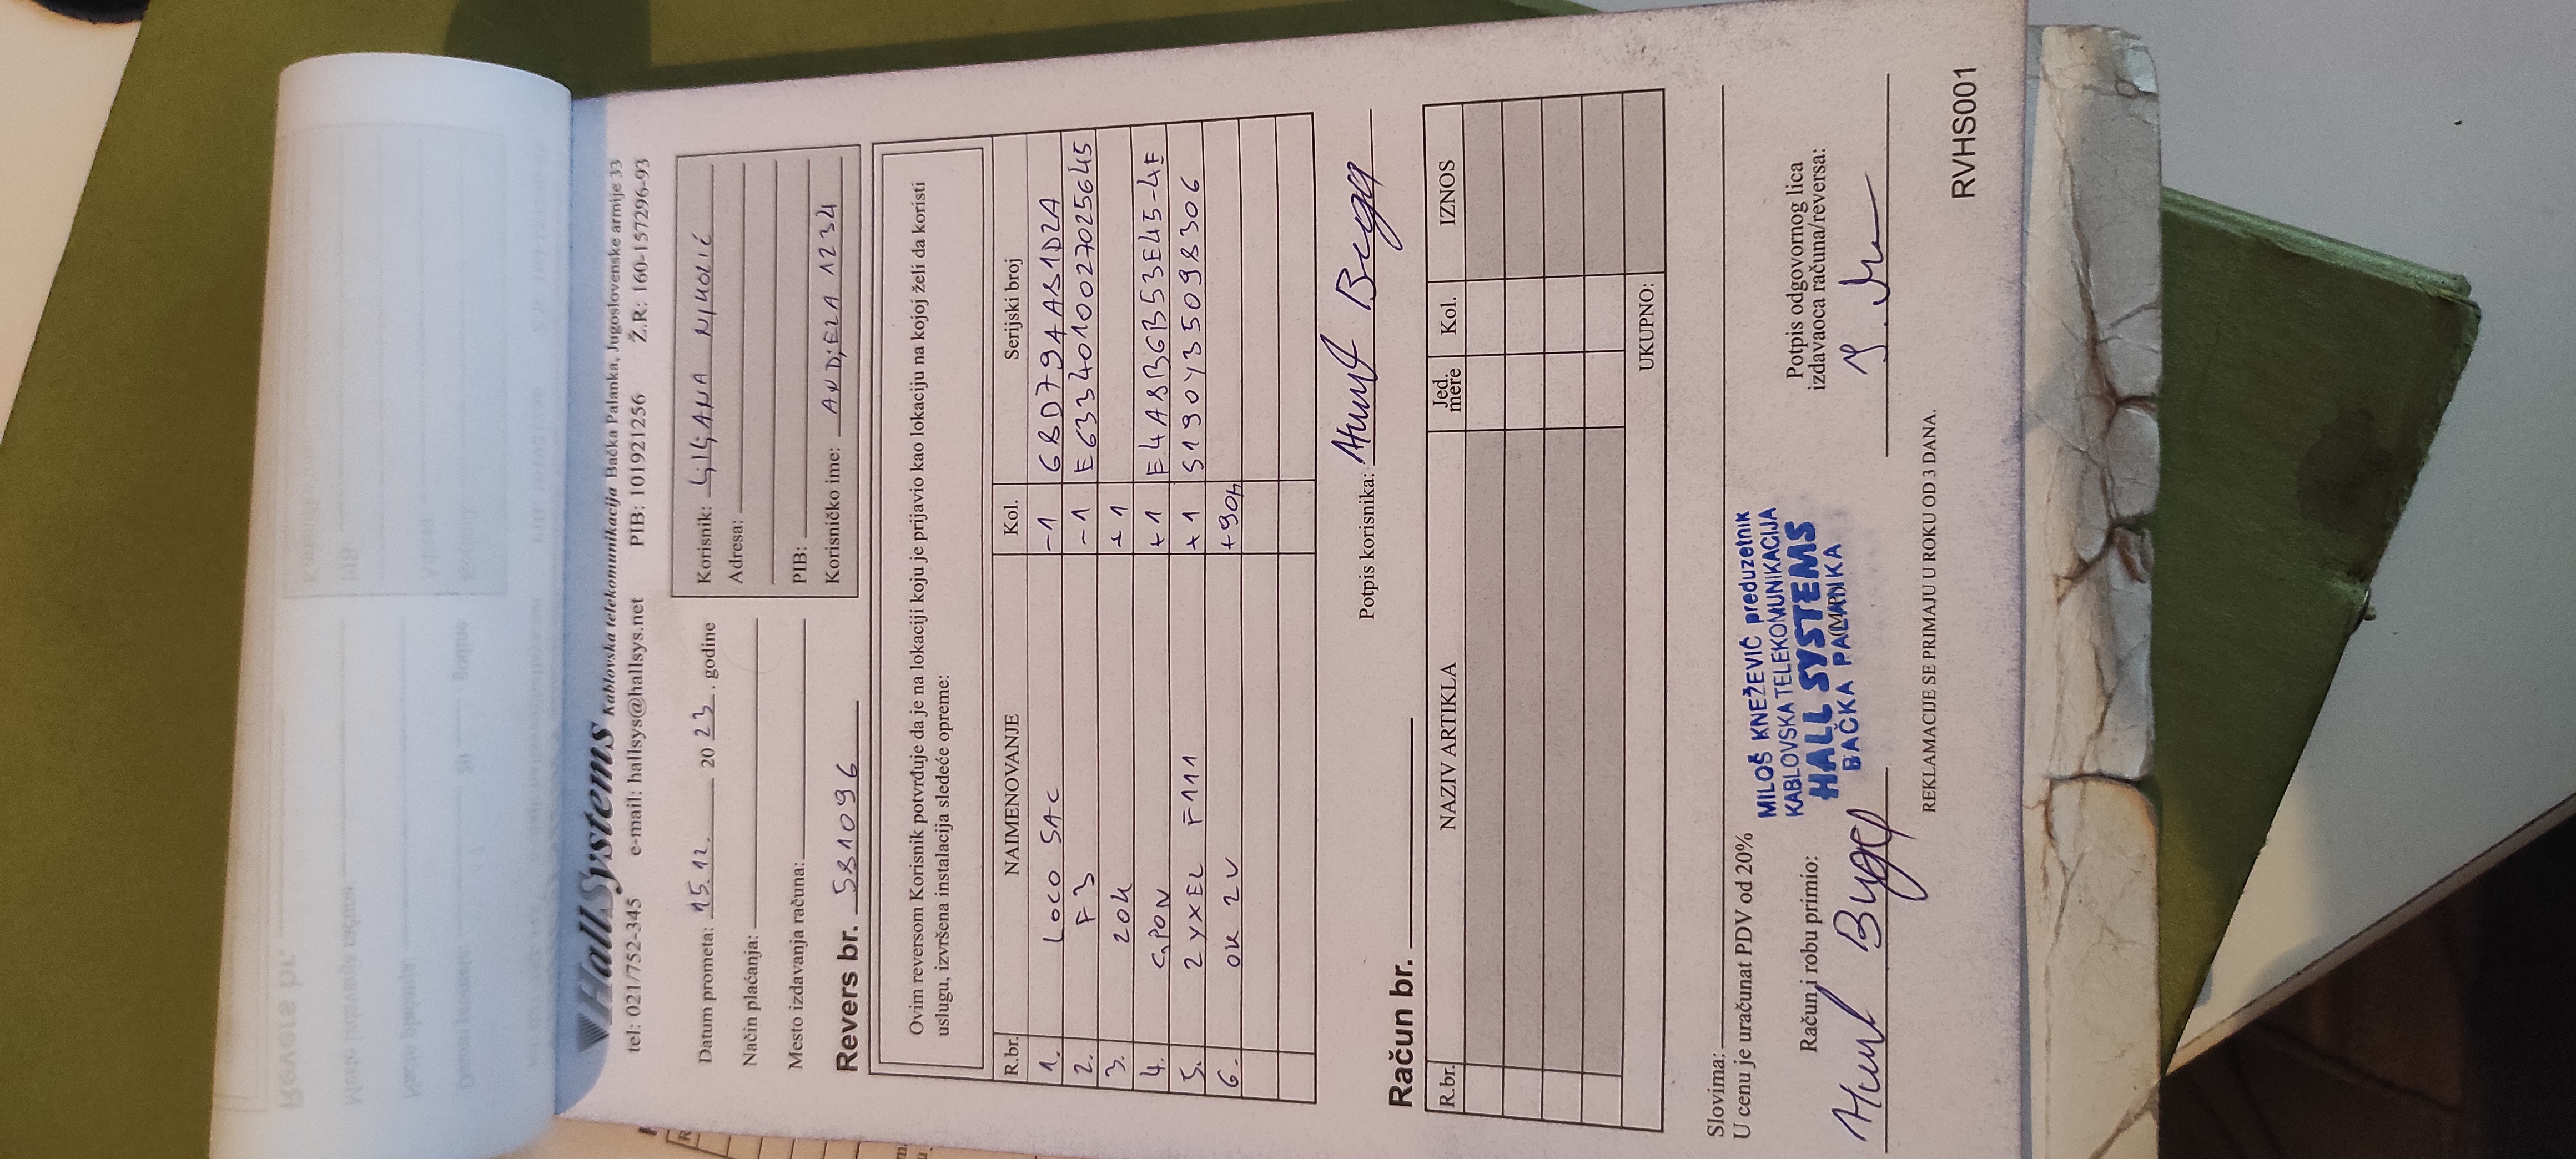 HallSystems Kablovska telekomunikacija Bačka Palanka, Jugoslovenske armije 33
tel: 021/752-345 e-mail: hallsys@hallsys.net PIB: 101921256 Ž.R: 160-157296-93
Datum prometa: 15.12. 2023. godine
Način plaćanja:
Mesto izdavanja računa:
Korisnik: LJILJANA NIKOLIĆ
Adresa:
PIB:
Korisničko ime: ANDJELA 1234
Revers br. 581096
Ovim reversom Korisnik potvrđuje da je na lokaciji koju je prijavio kao lokaciju na kojoj želi da koristi
uslugu, izvršena instalacija sledeće opreme:
R.br. NAIMENOVANJE Kol. Serijski broj
1. LOCO SAC -1 68D794A81D2A
2. F3 -1 E6334010027025645
3. 20K +1
4. GPON +1 F4A8B6B53E45-4F
5. ZYXEL F111 +1 S190Y35098306
6. OK 2V +90M
Potpis korisnika:
Račun br.
R.br. NAZIV ARTIKLA Jed. mere Kol. IZNOS
UKUPNO:
Slovima:
U cenu je uračunat PDV od 20%
Račun i robu primio:
MILOŠ KNEŽEVIĆ preduzetnik
KABLOVSKA TELEKOMUNIKACIJA
HALL SYSTEMS
BAČKA PALANKA
Potpis odgovornog lica
izdavaoca računa/reversa:
REKLAMACIJE SE PRIMAJU U ROKU OD 3 DANA.
RVHS001